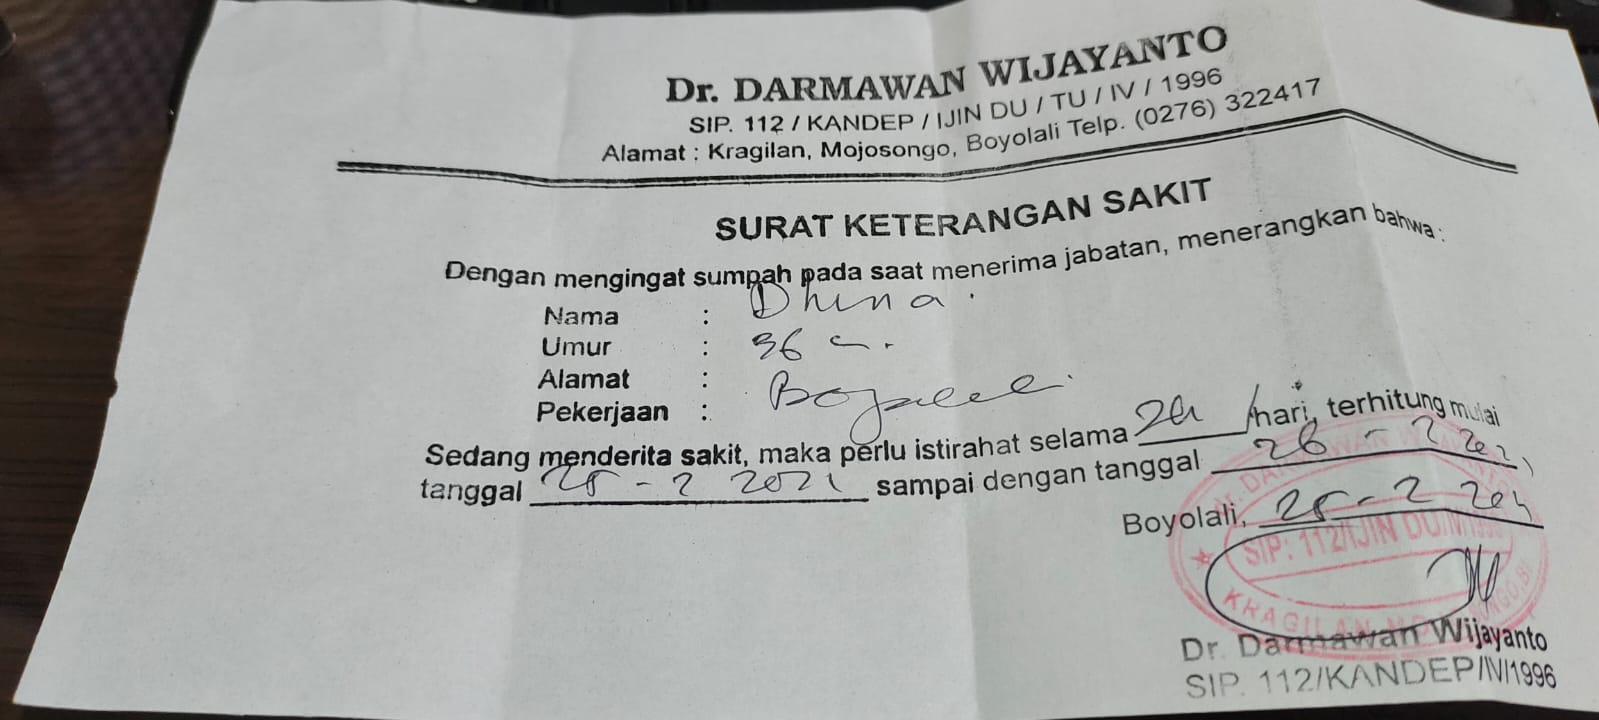 Dr. DARMAWAN WIJAYANTO
SIP. 112 / KANDEP / IJIN DU / TU / IV / 1996
Alamat : Kragilan, Mojosongo, Boyolali Telp. (0276) 322417
SURAT KETERANGAN SAKIT
Dengan mengingat sumpah pada saat menerima jabatan, menerangkan bahwa :
Nama : Dhina.
Umur : 36
Alamat : Boyolali
Pekerjaan :
Sedang menderita sakit, maka perlu istirahat selama hari, terhitung mulai
tanggal 25 - 2 2021 sampai dengan tanggal 26 - 2 2021
Boyolali, 25 - 2 2021
SIP: 112/IJIN DU/IV/1996
KRAGILAN
Dr. Darmawan Wijayanto
SIP. 112/KANDEP/IV/1996